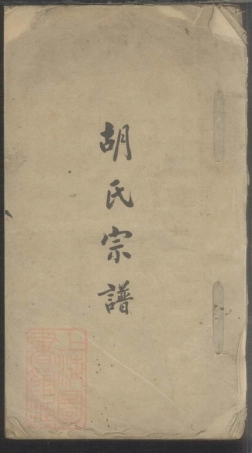 胡氏宗譜